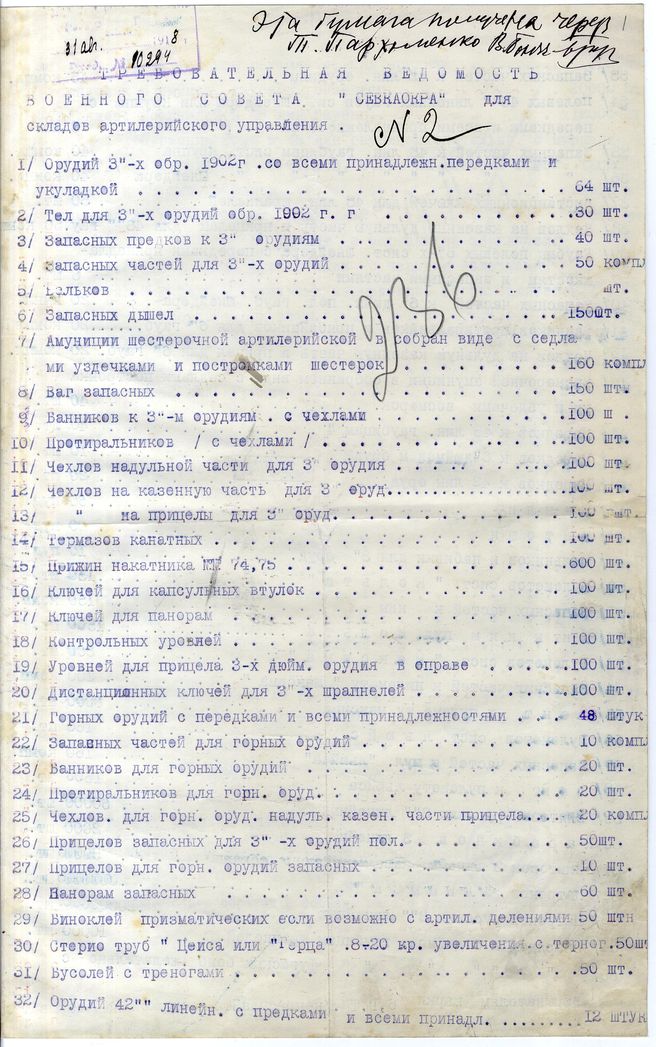 Эта бумага получена через
31 авг. 8
10294 Т. Пархоменко
ТРЕБОВАТЕЛЬНАЯ ВЕДОМОСТЬ
ВОЕННОГО СОВЕТА "СЕВКАОКРА" для
складов артилерийского управления .
N 2
1/ Орудий 3"-х обр. 1902г .со всеми принадлежн.передками и
укуладкой . . . . . . . . . . . . . . . . 64 шт.
2/ Тел для 3"-х орудий обр. 1902 г. г . . . . . . . . 30 шт.
3/ Запасных предков к 3" орудиям . . . . . . . . . . 40 шт.
4/ Запасных частей для 3"-х орудий . . . . . . . . . 50 компл
5/ Вальков . . . . . . . . . . . . . . . . . шт.
6/ Запасных дышел . . . . . . . . . . . . . . . 150шт.
236
7/ Амуниции шестерочной артилерийской в собран виде с седла
ми уздечками и постромками шестерок . . . . . . . 160 компл
8/ Ваг запасных . . . . . . . . . . . . . . . . 150 шт.
9/ Банников к 3"-м орудиям . с чехлами . . . . . . . 100 ш .
10/ Протиральников / с чехлами / . . . . . . . . . . 100 шт.
11/ Чехлов надульной части для 3" орудия . . . . . . . 100 шт.
12/ Чехлов на казенную часть для 3" оруд................100 шт.
13/ " на прицелы для 3" оруд. . . . . . . . . . 100 шт.
14/ Термазов канатных . . . . . . . . . . . . . . 100 шт.
15/ Пржин накатника №№ 74,75 . . . . . . . . . . . 600 шт.
16/ Ключей для капсульных втулок . . . . . . . . . . 100 шт.
17/ Ключей для панорам . . . . . . . . . . . . . . 100 шт.
18/ Контрольных уровней . . . . . . . . . . . . . 100 шт.
19/ Уровней для прицела 3-х дюйм. орудия в оправе . . . . 100 шт.
20/ Дистанционных ключей для 3"-х шрапнелей . . . . . . 100 шт.
21/ Горных орудий с передками и всеми принадлежностями . . . 48 штук
22/ Запавных частей для горных орудий . . . . . . . . 10 компл
23/ Банников для горных орудий . . . . . . . . . . . 20 шт.
24/ Протиральников для горн. оруд. . . . . . . . . . 20 шт.
25/ Чехлов. для горн. оруд. надуль. казен. части прицела.... 20 компл
26/ Прицелов запасных для 3" -х орудий пол. . . . . . . 50шт.
27/ Прицелов для горн. орудий запасных . . . . . . . . 10 шт.
28/ Панорам запасных . . . . . . . . . . . . . . 60 шт.
29/ Биноклей призматических если возможно с артил. делениями 50 штн
30/ Стерио труб " Цейса или "Герца" .8-20 кр. увеличения.с терног.50шт
31/ Бусолей с треногами . . . . . . . . . . . . . .50 шт.
32/ Орудий 42"" линейн. с предками и всеми принадл. .........12 ШТУК